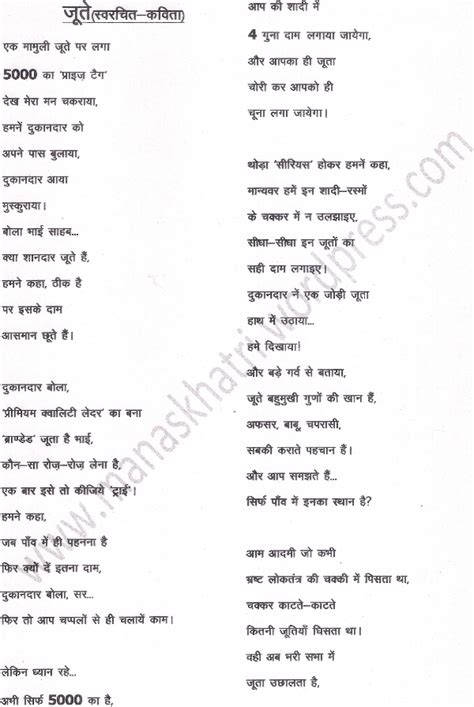 जूते(स्वरचित–कविता)
एक मामुली जूते पर लगा
5000 का 'प्राइज़ टैग'
देख मेरा मन चकराया,
हमनें दुकानदार को
अपने पास बुलाया,
दुकानदार आया
मुस्कुराया।
बोला भाई साहब...
क्या शानदार जूते हैं,
हमने कहा, ठीक है
पर इसके दाम
आसमान छूते हैं।
दुकानदार बोला,
'प्रीमियम क्वालिटी लेदर' का बना
'ब्राण्डेड' जूता है भाई,
कौन–सा रोज़–रोज़ लेना है,
एक बार इसे तो कीजिये 'ट्राई'।
हमने कहा,
जब पाँव में ही पहनना है
फिर क्यों दें इतना दाम,
दुकानदार बोला, सर...
फिर तो आप चप्पलों से ही चलायें काम।
लेकिन ध्यान रहे...
अभी सिर्फ 5000 का है,
आप की शादी में
4 गुना दाम लगाया जायेगा,
और आपका ही जूता
चोरी कर आपको ही
चूना लगा जायेगा।
थोड़ा 'सीरियस' होकर हमनें कहा,
मान्यवर हमें इन शादी–रस्मों
के चक्कर में न उलझाइए,
सीधा–सीधा इन जूतों का
सही दाम लगाइए।
दुकानदार नें एक जोड़ी जूता
हाथ में उठाया...
हमे दिखाया!
और बड़े गर्व से बताया,
जूते बहुमुखी गुणों की खान हैं,
अफसर, बाबू, चपरासी,
सबकी कराते पहचान हैं।
और आप समझते हैं...
सिर्फ पाँव में इनका स्थान है?
आम आदमी जो कभी
भ्रष्ट लोकतंत्र की चक्की में पिसता था,
चक्कर काटते–काटते
कितनी जूतियाँ घिसता था।
वही अब भरी सभा में
जूता उछालता है,
www.manaskhatri.wordpress.com